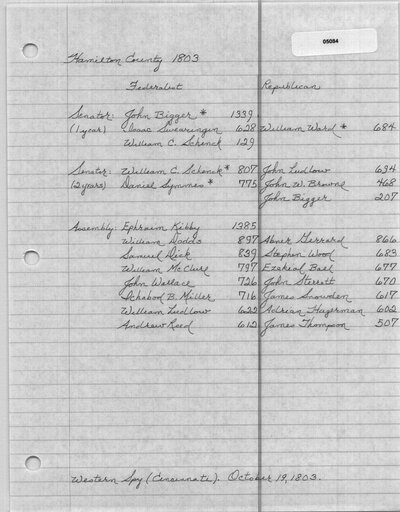 05084
Hamilton County 1803
Federalist Republican
Senator: John Bigger * 1339
(1 year) Isaac Swearingen 628 William Ward * 684
William C. Schenck 129
Senator: William C. Schenck * 807 John Ludlow 634
(2 years) Daniel Symmes * 775 John W. Browne 468
John Bigger 207
Assembly: Ephraim Kibby 1385
William Dodds 897 Abner Gerrard 866
Samuel Dick 839 Stephen Wood 683
William McClure 797 Ezekeal Ball 677
John Wallace 726 John Sterrett 670
Ichabod B. Miller 716 James Snowden 617
William Ludlow 622 Adrian Hagerman 602
Andrew Reed 612 James Thompson 507
Western Spy (Cincinnati). October 19, 1803.